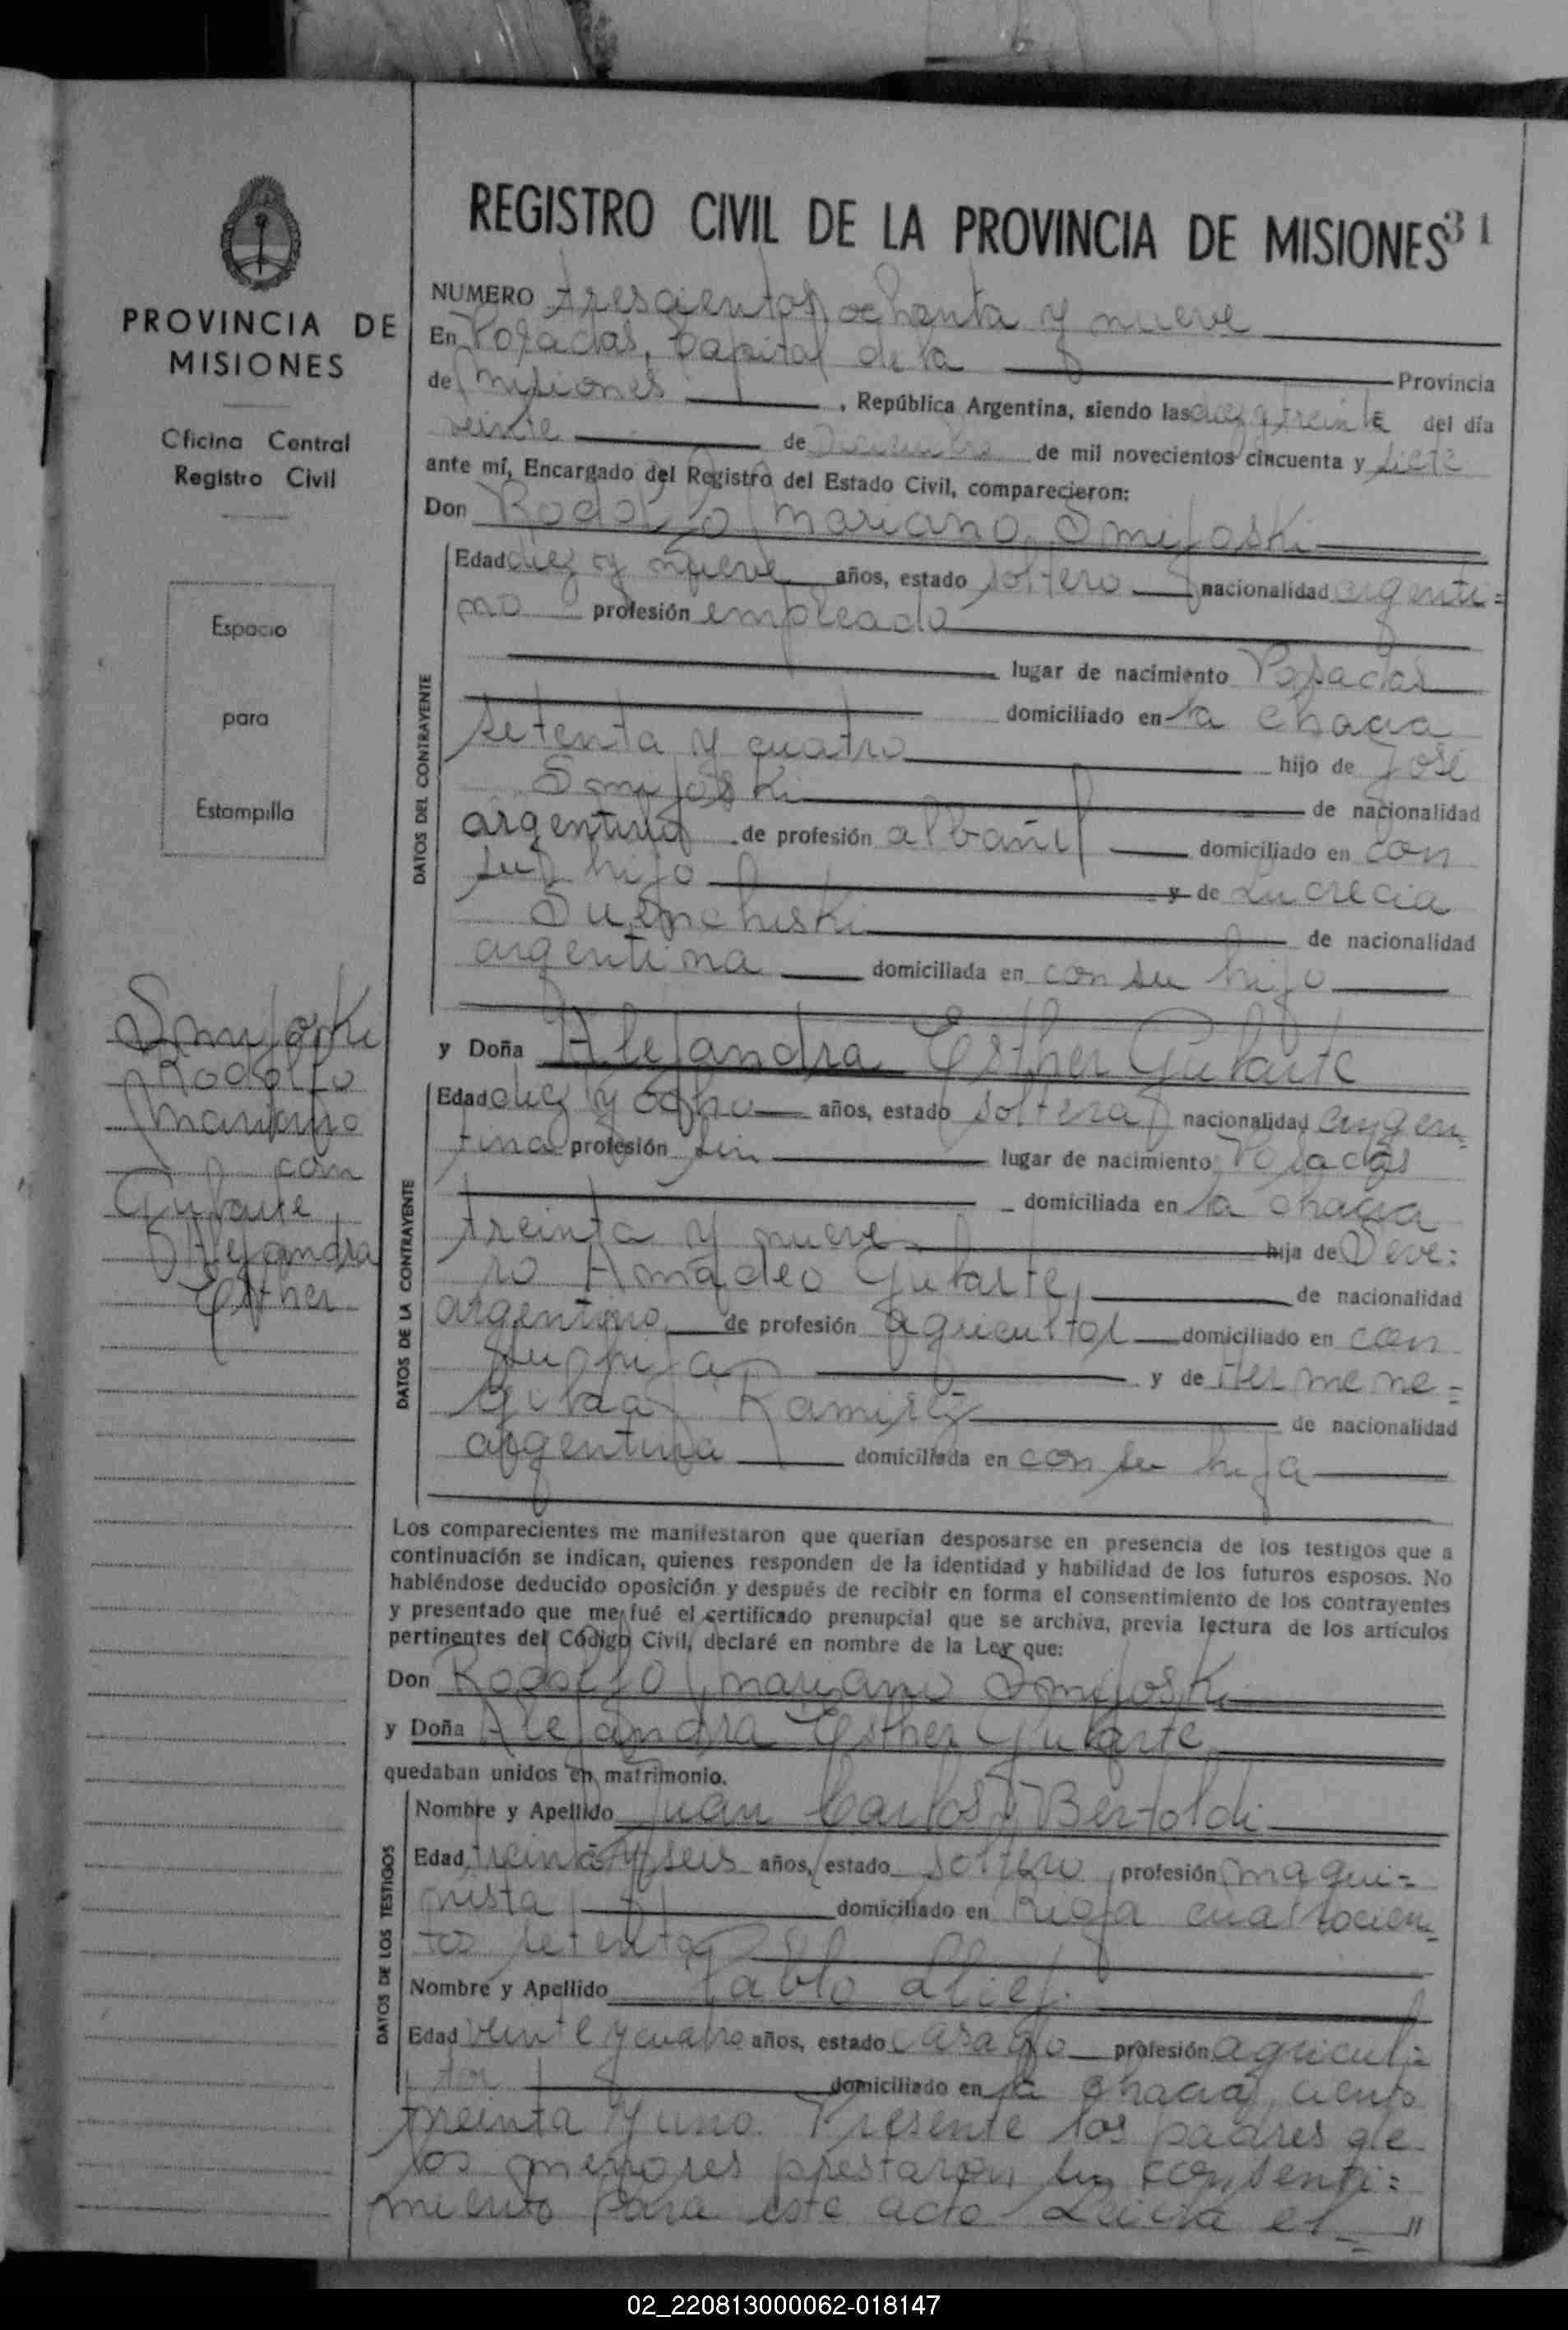 REGISTRO CIVIL DE LA PROVINCIA DE MISIONES 31
PROVINCIA DE
MISIONES
Oficina Central
Registro Civil
Espacio
para
Estampilla
Smijoski
Rodolfo
Mariano
con
Gularte
Alejandra
Esther
NUMERO trescientos ochenta y nueve
En Posadas, Capital de la Provincia
de Misiones, República Argentina, siendo las diez y treinta del día
veinte de Diciembre de mil novecientos cincuenta y siete
ante mí, Encargado del Registro del Estado Civil, comparecieron:
Don Rodolfo Mariano Smijoski
DATOS DEL CONTRAYENTE
Edad diez y nueve años, estado soltero nacionalidad argenti=
no profesión empleado
lugar de nacimiento Posadas
domiciliado en la chacra
setenta y cuatro hijo de José
Smijoski de nacionalidad
argentina de profesión albañil domiciliado en con
su hijo y de Lucrecia
de nacionalidad
argentina domiciliada en con su hijo
y Doña Alejandra Esther Gularte
DATOS DE LA CONTRAYENTE
Edad diez y ocho años, estado soltera nacionalidad argen=
tina profesión sin lugar de nacimiento Posadas
domiciliada en la chacra
treinta y nueve hija de Seve=
ro Amadeo Gularte, de nacionalidad
argentino de profesión agricultor domiciliado en con
su hija y de Hermene=
gilda Ramirez de nacionalidad
argentina domiciliada en con su hija
Los comparecientes me manifestaron que querían desposarse en presencia de los testigos que a
continuación se indican, quienes responden de la identidad y habilidad de los futuros esposos. No
habiéndose deducido oposición y después de recibir en forma el consentimiento de los contrayentes
y presentado que me fué el certificado prenupcial que se archiva, previa lectura de los artículos
pertinentes del Código Civil, declaré en nombre de la Ley que:
Don Rodolfo Mariano Smijoski
y Doña Alejandra Esther Gularte
quedaban unidos en matrimonio.
DATOS DE LOS TESTIGOS
Nombre y Apellido Juan Carlos Bertoldi
Edad treinta y seis años, estado soltero profesión maqui=
nista domiciliado en Rioja cuatrocien=
tos setenta
Nombre y Apellido Pablo
Edad veinte y cuatro años, estado casado profesión agricul=
tor domiciliado en la chacra ciento
treinta y uno. Presente los padres de
los menores prestaron su consenti=
miento para este acto Leida el = "
02_220813000062-018147